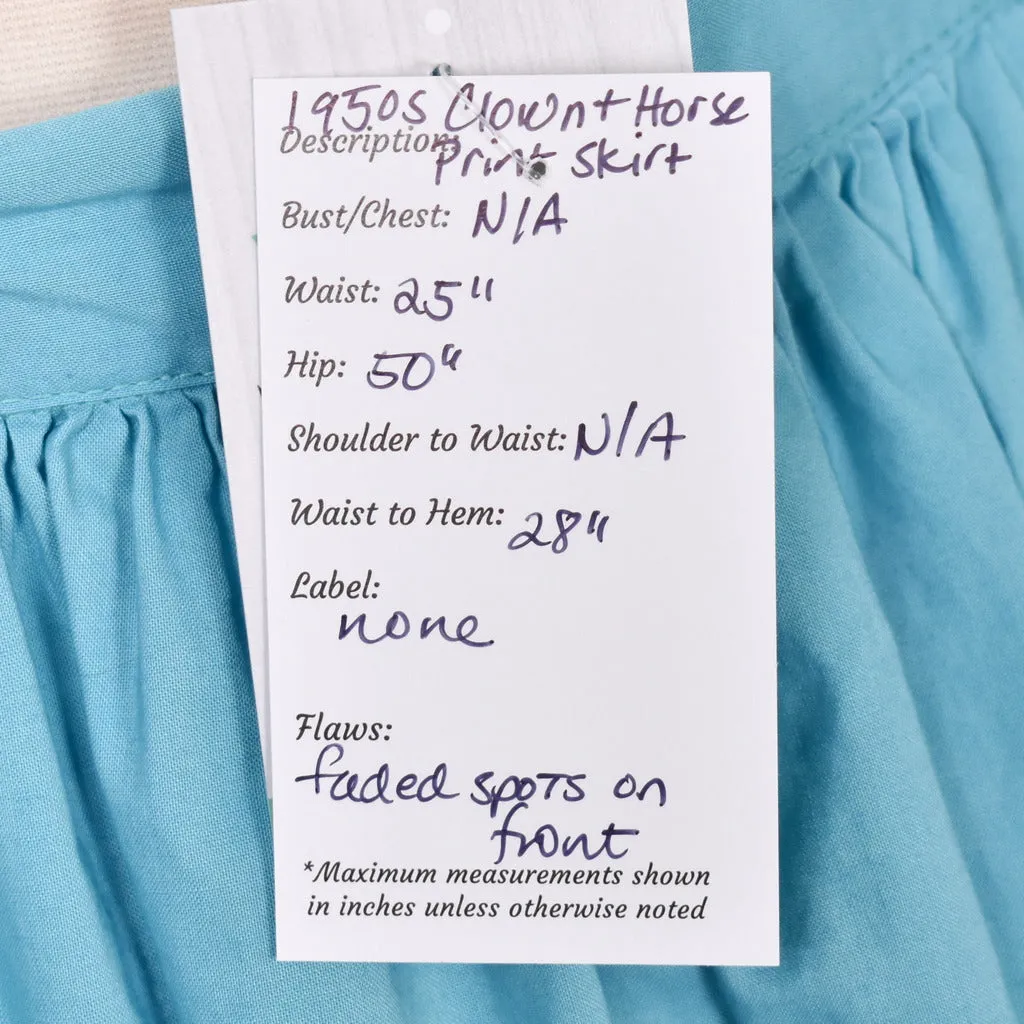 1950s Clown + Horse
Description: Print Skirt
Bust/Chest: N/A
Waist: 25"
Hip: 50"
Shoulder to Waist: N/A
Waist to Hem: 28"
Label:
none
Flaws:
faded spots on
front
*Maximum measurements shown
in inches unless otherwise noted